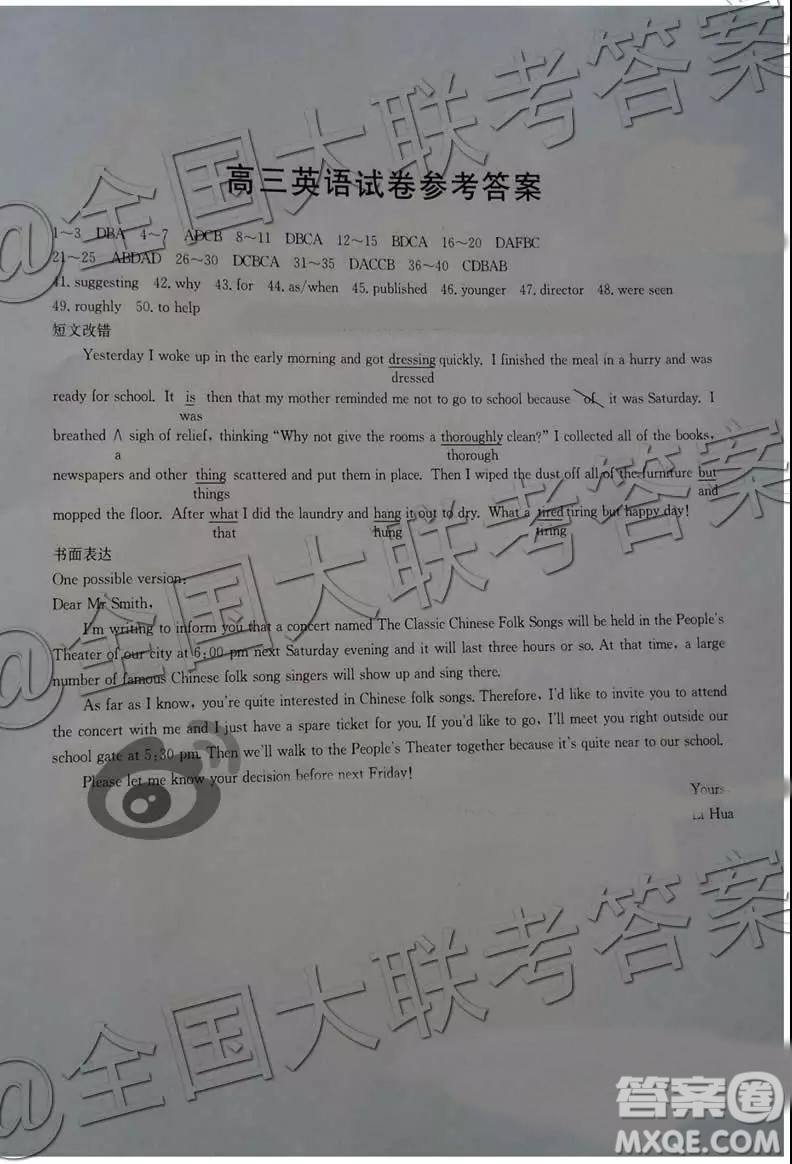 @全国大联考答案
高三英语试卷参考答案
1～3 DBA 4～7 ADCB 8～11 DBCA 12～15 BDCA 16～20 DAFBC
21～25 ABDAD 26～30 DCBCA 31～35 DACCB 36～40 CDBAB
41. suggesting 42. why 43. for 44. as/when 45. published 46. younger 47. director 48. were seen
49. roughly 50. to help
短文改错
Yesterday I woke up in the early morning and got dressing quickly. I finished the meal in a hurry and was
dressed
ready for school. It is then that my mother reminded me not to go to school because of it was Saturday. I
was
breathed ∧ sigh of relief, thinking "Why not give the rooms a thoroughly clean?" I collected all of the books,
a thorough
newspapers and other thing scattered and put them in place. Then I wiped the dust off all of the furniture but
things and
mopped the floor. After what I did the laundry and hang it out to dry. What a tired tiring but happy day!
that hung tiring
书面表达
One possible version:
Dear Mr Smith,
I'm writing to inform you that a concert named The Classic Chinese Folk Songs will be held in the People's
Theater of our city at 6:00 pm next Saturday evening and it will last three hours or so. At that time, a large
number of famous Chinese folk song singers will show up and sing there.
As far as I know, you're quite interested in Chinese folk songs. Therefore, I'd like to invite you to attend
the concert with me and I just have a spare ticket for you. If you'd like to go, I'll meet you right outside our
school gate at 5:30 pm. Then we'll walk to the People's Theater together because it's quite near to our school.
Please let me know your decision before next Friday!
Yours
Li Hua
@全国大联考答案
@全国大联考答案
答案圈
MXQE.COM